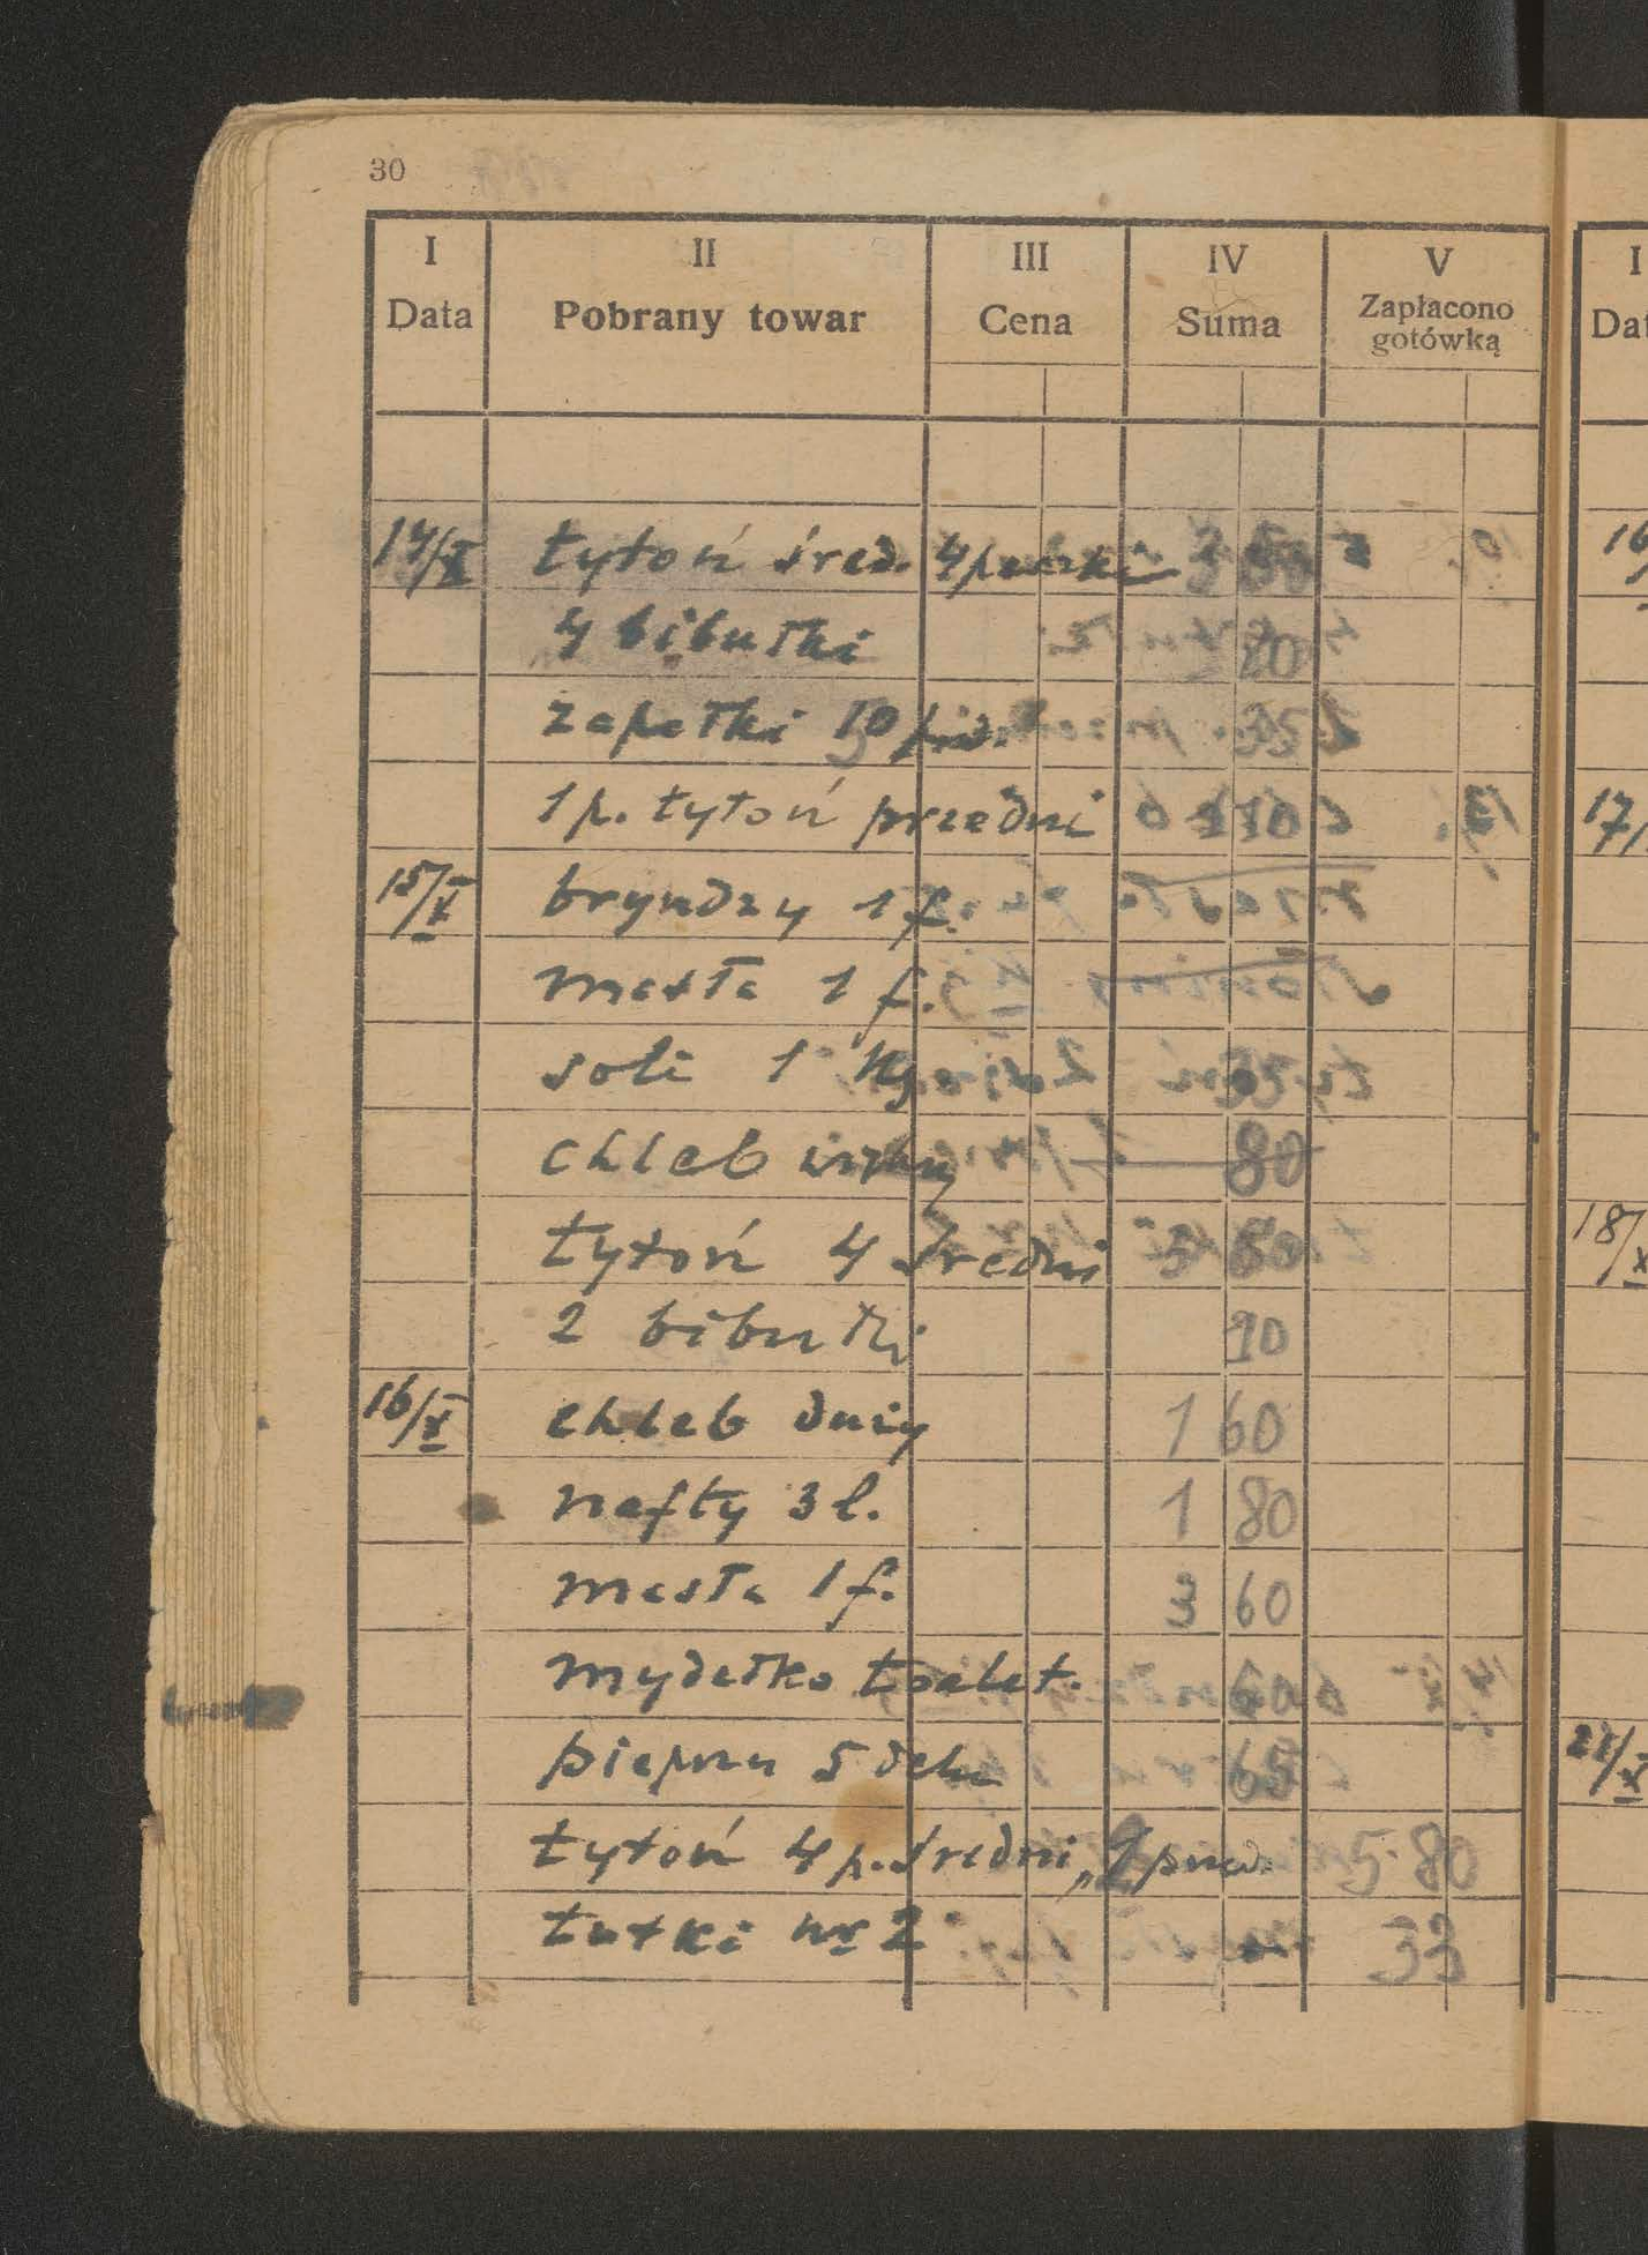 30
I II III IV V I
Data Pobrany towar Cena Suma Zapłacono gotówką
14/X tytoń śred. 4 paczki 3 50
4 bibułki 20
zapałki 10 35
1 p. tytoń przedni
15/X bryndzy 1 f.
masła 1 f.
soli 1 kg 35
chleb 80
tytoń 4 średni 3 50
2 bibułki 10
16/X chleb duży 1 60
nafty 3 l. 1 80
masła 1 f. 3 60
mydełko toalet. 60
pieprzu 5 deka 65
tytoń 4 p. średni, 5·80
tutki nr 2 33
16
17/
18/X